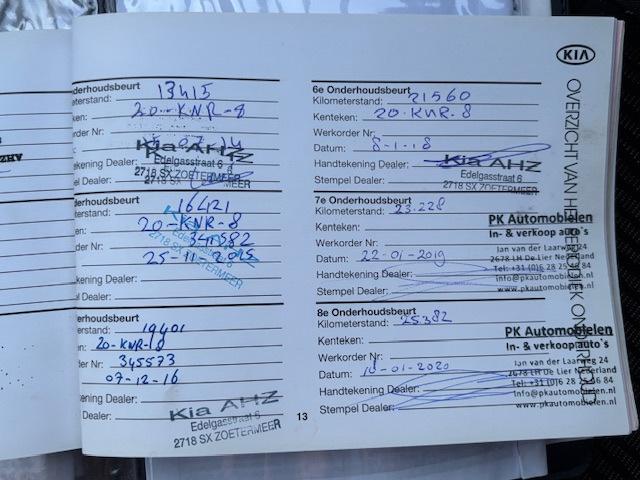 ZHV
derhoudsbeurt
meterstand: 13415
enteken: 20-KNR-8
rkorder Nr:
Datum:
Kia AHZ
Edelgasstraat 6
2718 SX ZOETERMEER
tekening Dealer:
mpel Dealer:
derhoudsbeurt
rstand: 16421
en: 20-KNR-8
der Nr: 341582
25-11-2015
Edelgasstraat 6
2718 SX ZOETERMEER
kening Dealer:
Dealer:
derhoudsbeurt
tand: 19401
20-KNR-8
er Nr: 345573
07-12-16
ening Dealer:
Dealer:
Kia AHZ
Edelgasstraat 6
2718 SX ZOETERMEER
13
6e Onderhoudsbeurt
Kilometerstand: 21560
Kenteken: 20-KNR-8
Werkorder Nr:
Datum: 8-1-18
Handtekening Dealer:
Stempel Dealer:
Kia AHZ
Edelgasstraat 6
2718 SX ZOETERMEER
7e Onderhoudsbeurt
Kilometerstand: 23.228
Kenteken:
Werkorder Nr:
Datum: 22-01-2019
Handtekening Dealer:
Stempel Dealer:
PK Automobielen
In- & verkoop auto's
Jan van der Laarweg 24
2678 LH De Lier Nederland
Tel: +31 (0)6 28 25 46 84
info@pkautomobielen.nl
www.pkautomobielen.nl
8e Onderhoudsbeurt
Kilometerstand: 25382
Kenteken:
Werkorder Nr:
Datum: 10-01-2020
Handtekening Dealer:
Stempel Dealer:
PK Automobielen
In- & verkoop auto's
Jan van der Laarweg 24
2678 LH De Lier Nederland
Tel: +31 (0)6 28 25 46 84
info@pkautomobielen.nl
www.pkautomobielen.nl
KIA
OVERZICHT VAN HET